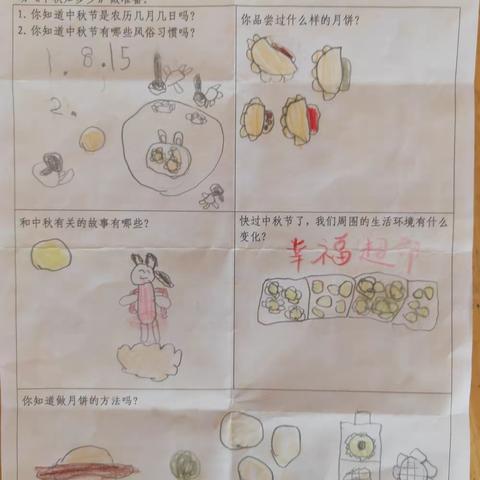 1. 你知道中秋节是农历几月几日吗?
2. 你知道中秋节有哪些风俗习惯吗?
1. 8. 15
2.
你品尝过什么样的月饼?
和中秋有关的故事有哪些?
快过中秋节了,我们周围的生活环境有什么
变化?
幸福超市
你知道做月饼的方法吗?